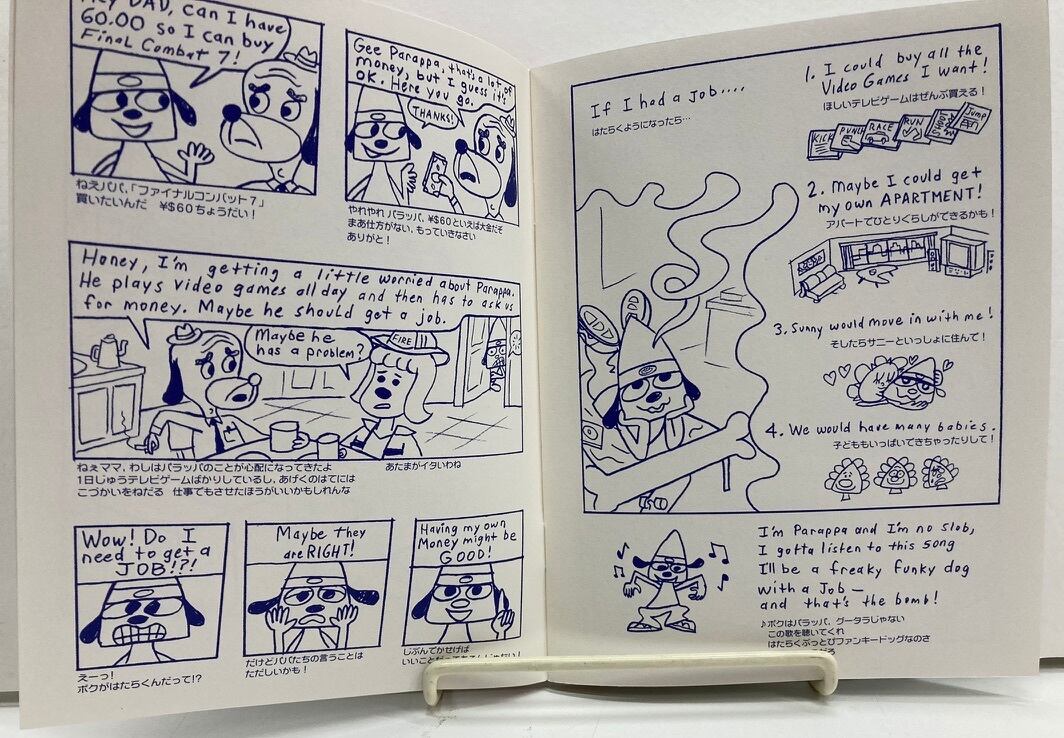 Hey DAD, can I have
60.00 so I can buy
Final Combat 7!
ねえパパ、「ファイナルコンバット7」
買いたいんだ ¥$60ちょうだい！
Gee Parappa, that's a lot of
money, but I guess it's
OK. Here you go.
THANKS!
やれやれ パラッパ、¥$60といえば大金だぞ
まあ仕方がない、もっていきなさい
ありがと！
Honey, I'm getting a little worried about Parappa.
He plays video games all day and then has to ask us
for money. Maybe he should get a job.
Maybe he
has a problem?
FIRE
ねぇママ、わしはパラッパのことが心配になってきたよ
1日じゅうテレビゲームばかりしているし、あげくのはてには
こづかいをねだる 仕事でもさせたほうがいいかもしれんな
あたまがイタいわね
Wow! Do I
need to get a
JOB!?!
えーっ！
ボクがはたらくんだって!?
Maybe they
are RIGHT!
だけどパパたちの言うことは
ただしいかも！
Having my own
Money might be
GOOD!
じぶんでかせげば
If I had a job....
はたらくようになったら…
1. I could buy all the
Video Games I want!
ほしいテレビゲームはぜんぶ買える！
KICK
PUNCH
RACE
RUN
JUMP
2. Maybe I could get
my own APARTMENT!
アパートでひとりぐらしができるかも！
3. Sunny would move in with me!
そしたらサニーといっしょに住んで！
4. We would have many babies.
子どももいっぱいできちゃったりして！
I'm Parappa and I'm no slob,
I gotta listen to this song
I'll be a freaky funky dog
with a Job —
and that's the bomb!
♪ボクはパラッパ、グータラじゃない
この歌を聴いてくれ
はたらくぶっとびファンキードッグなのさ